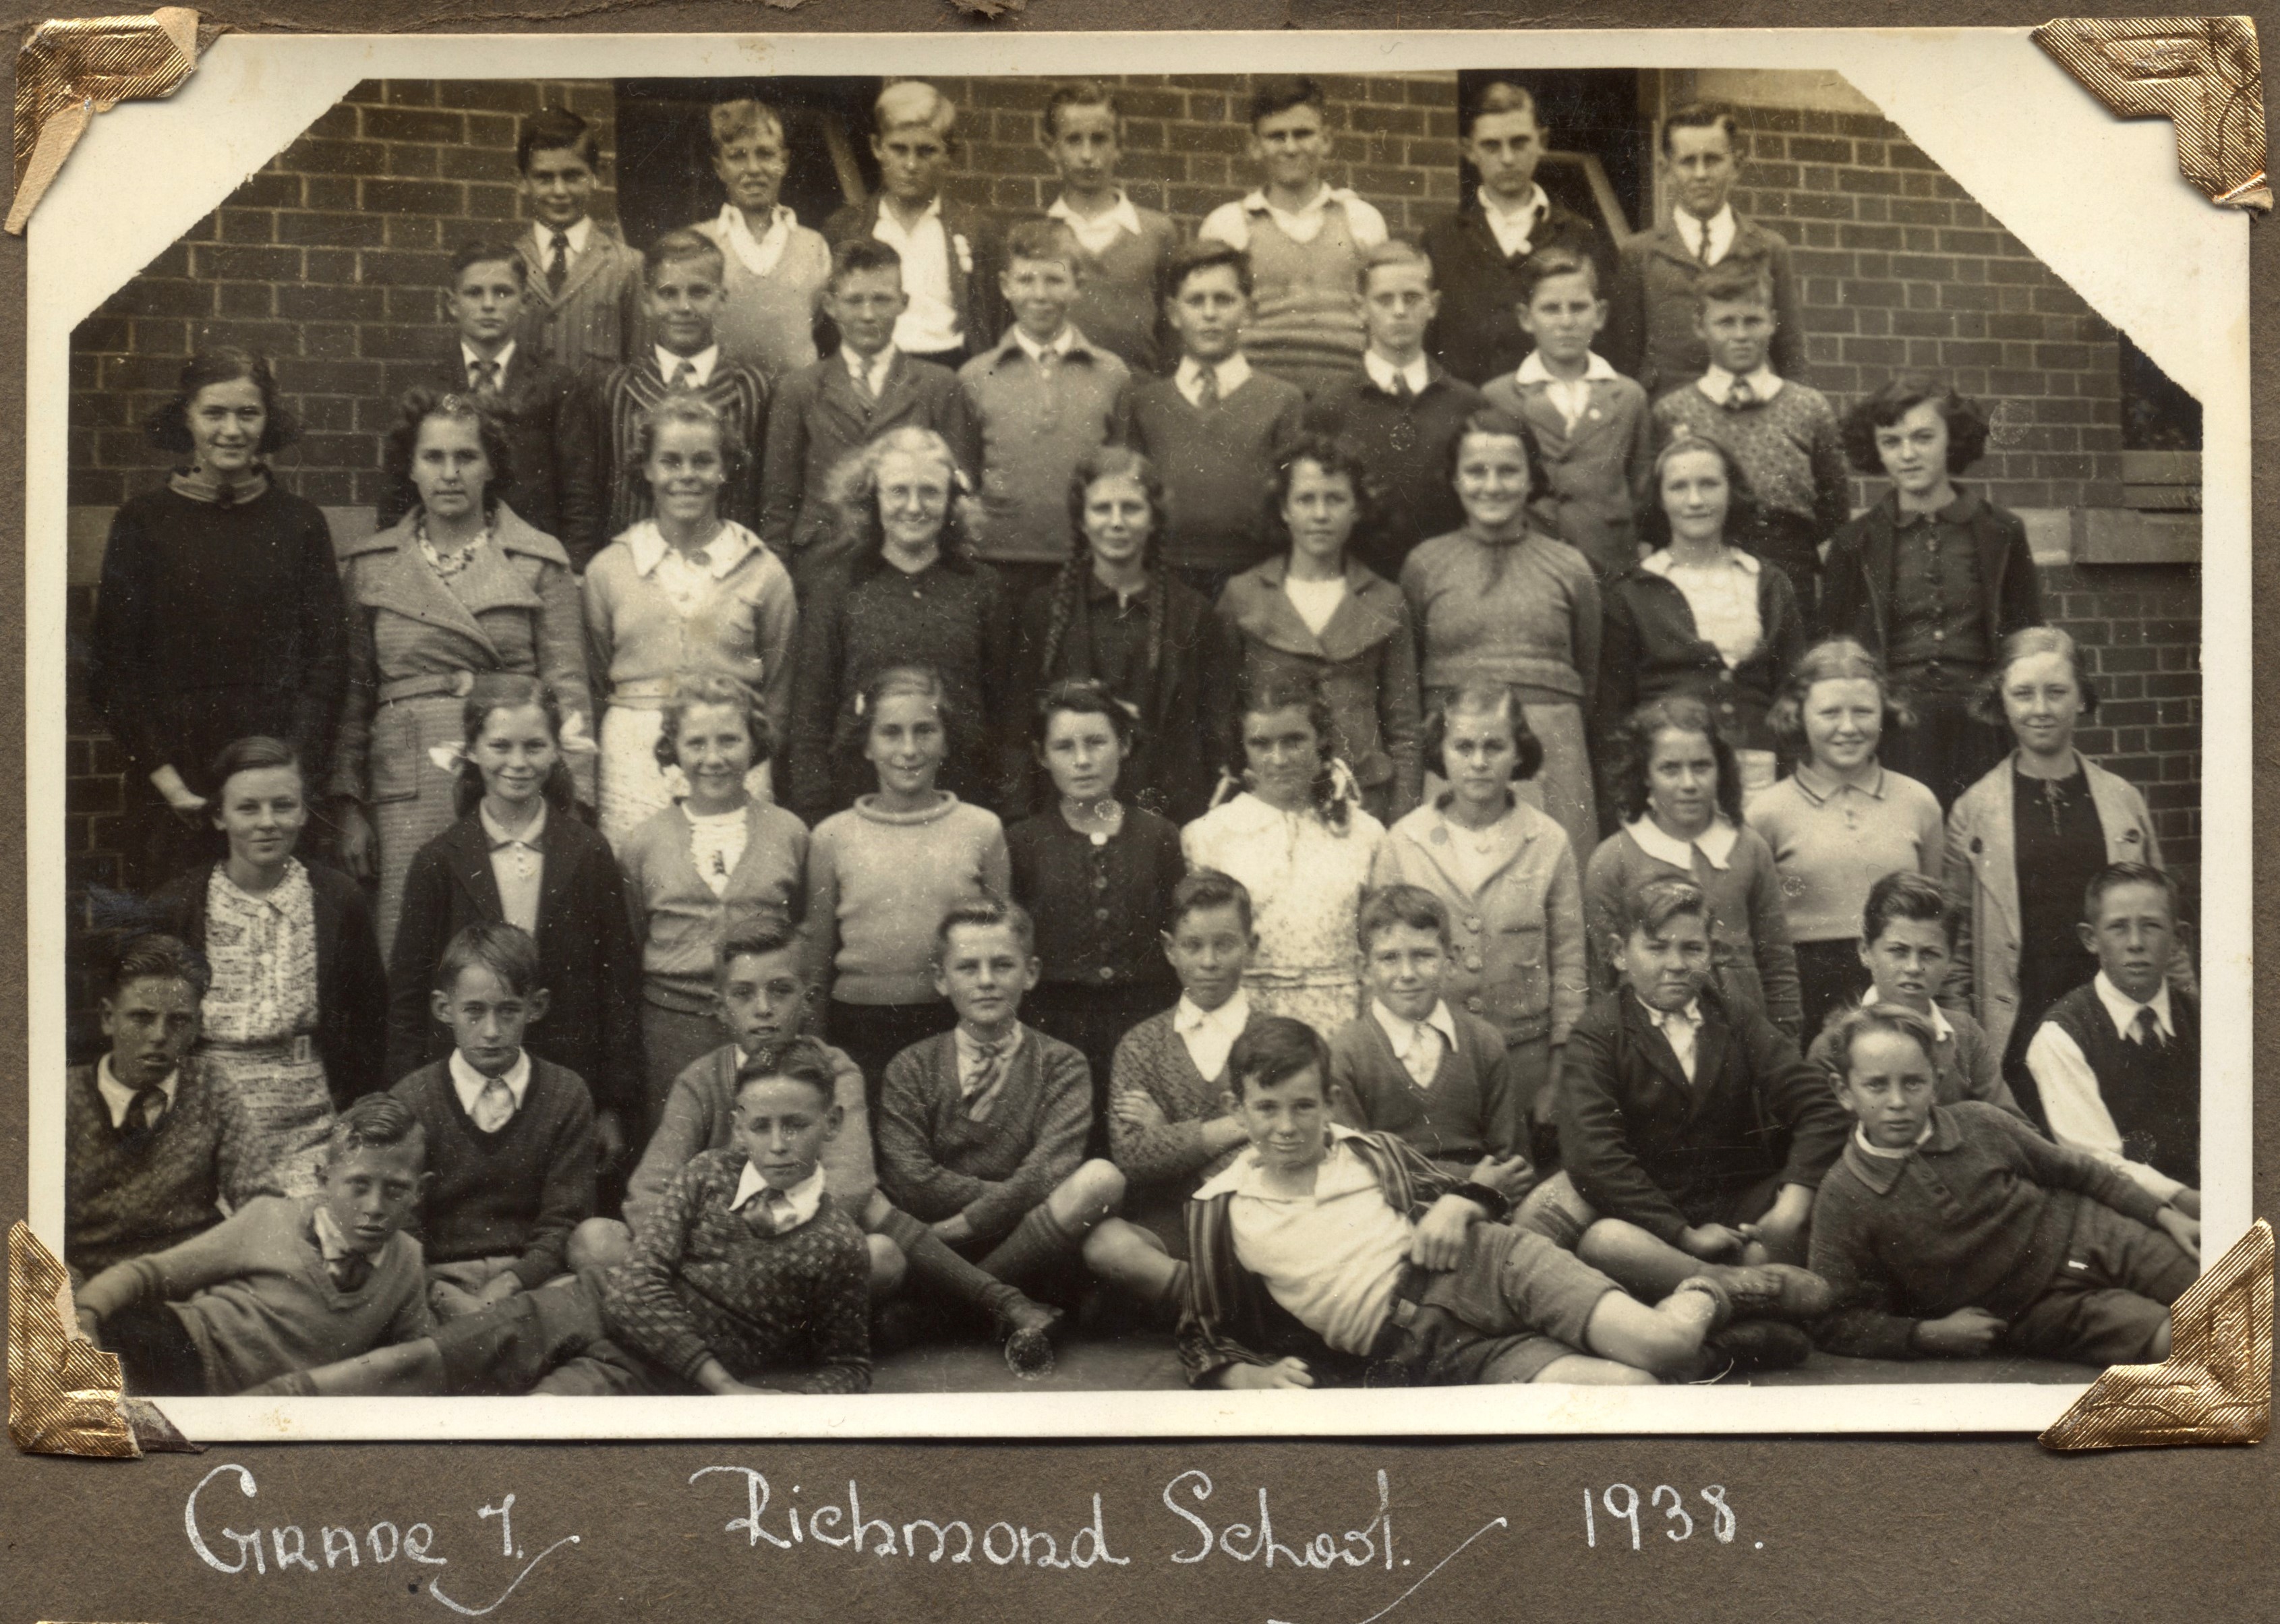 Grade 7. Richmond School. 1938.